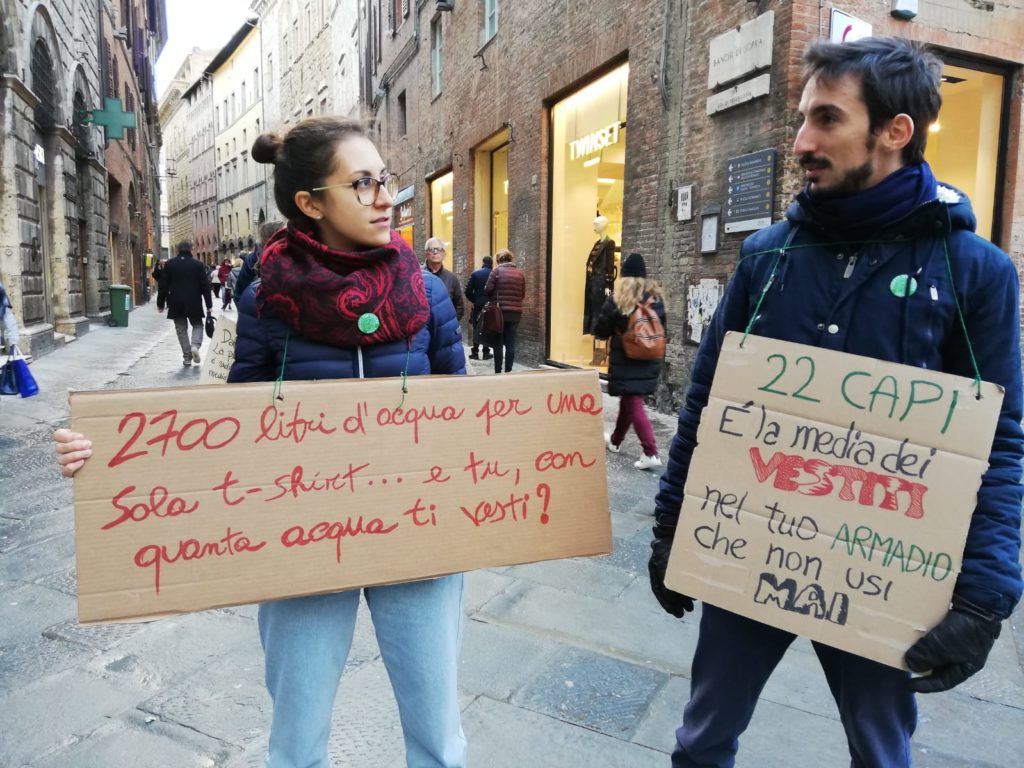 BANCHI DI SOPRA
TWINSET
2700 litri d'acqua per una
sola t-shirt... e tu, con
quanta acqua ti vesti?
22 CAPI
É la media dei
VESTITI
nel tuo ARMADIO
che non usi
MAI